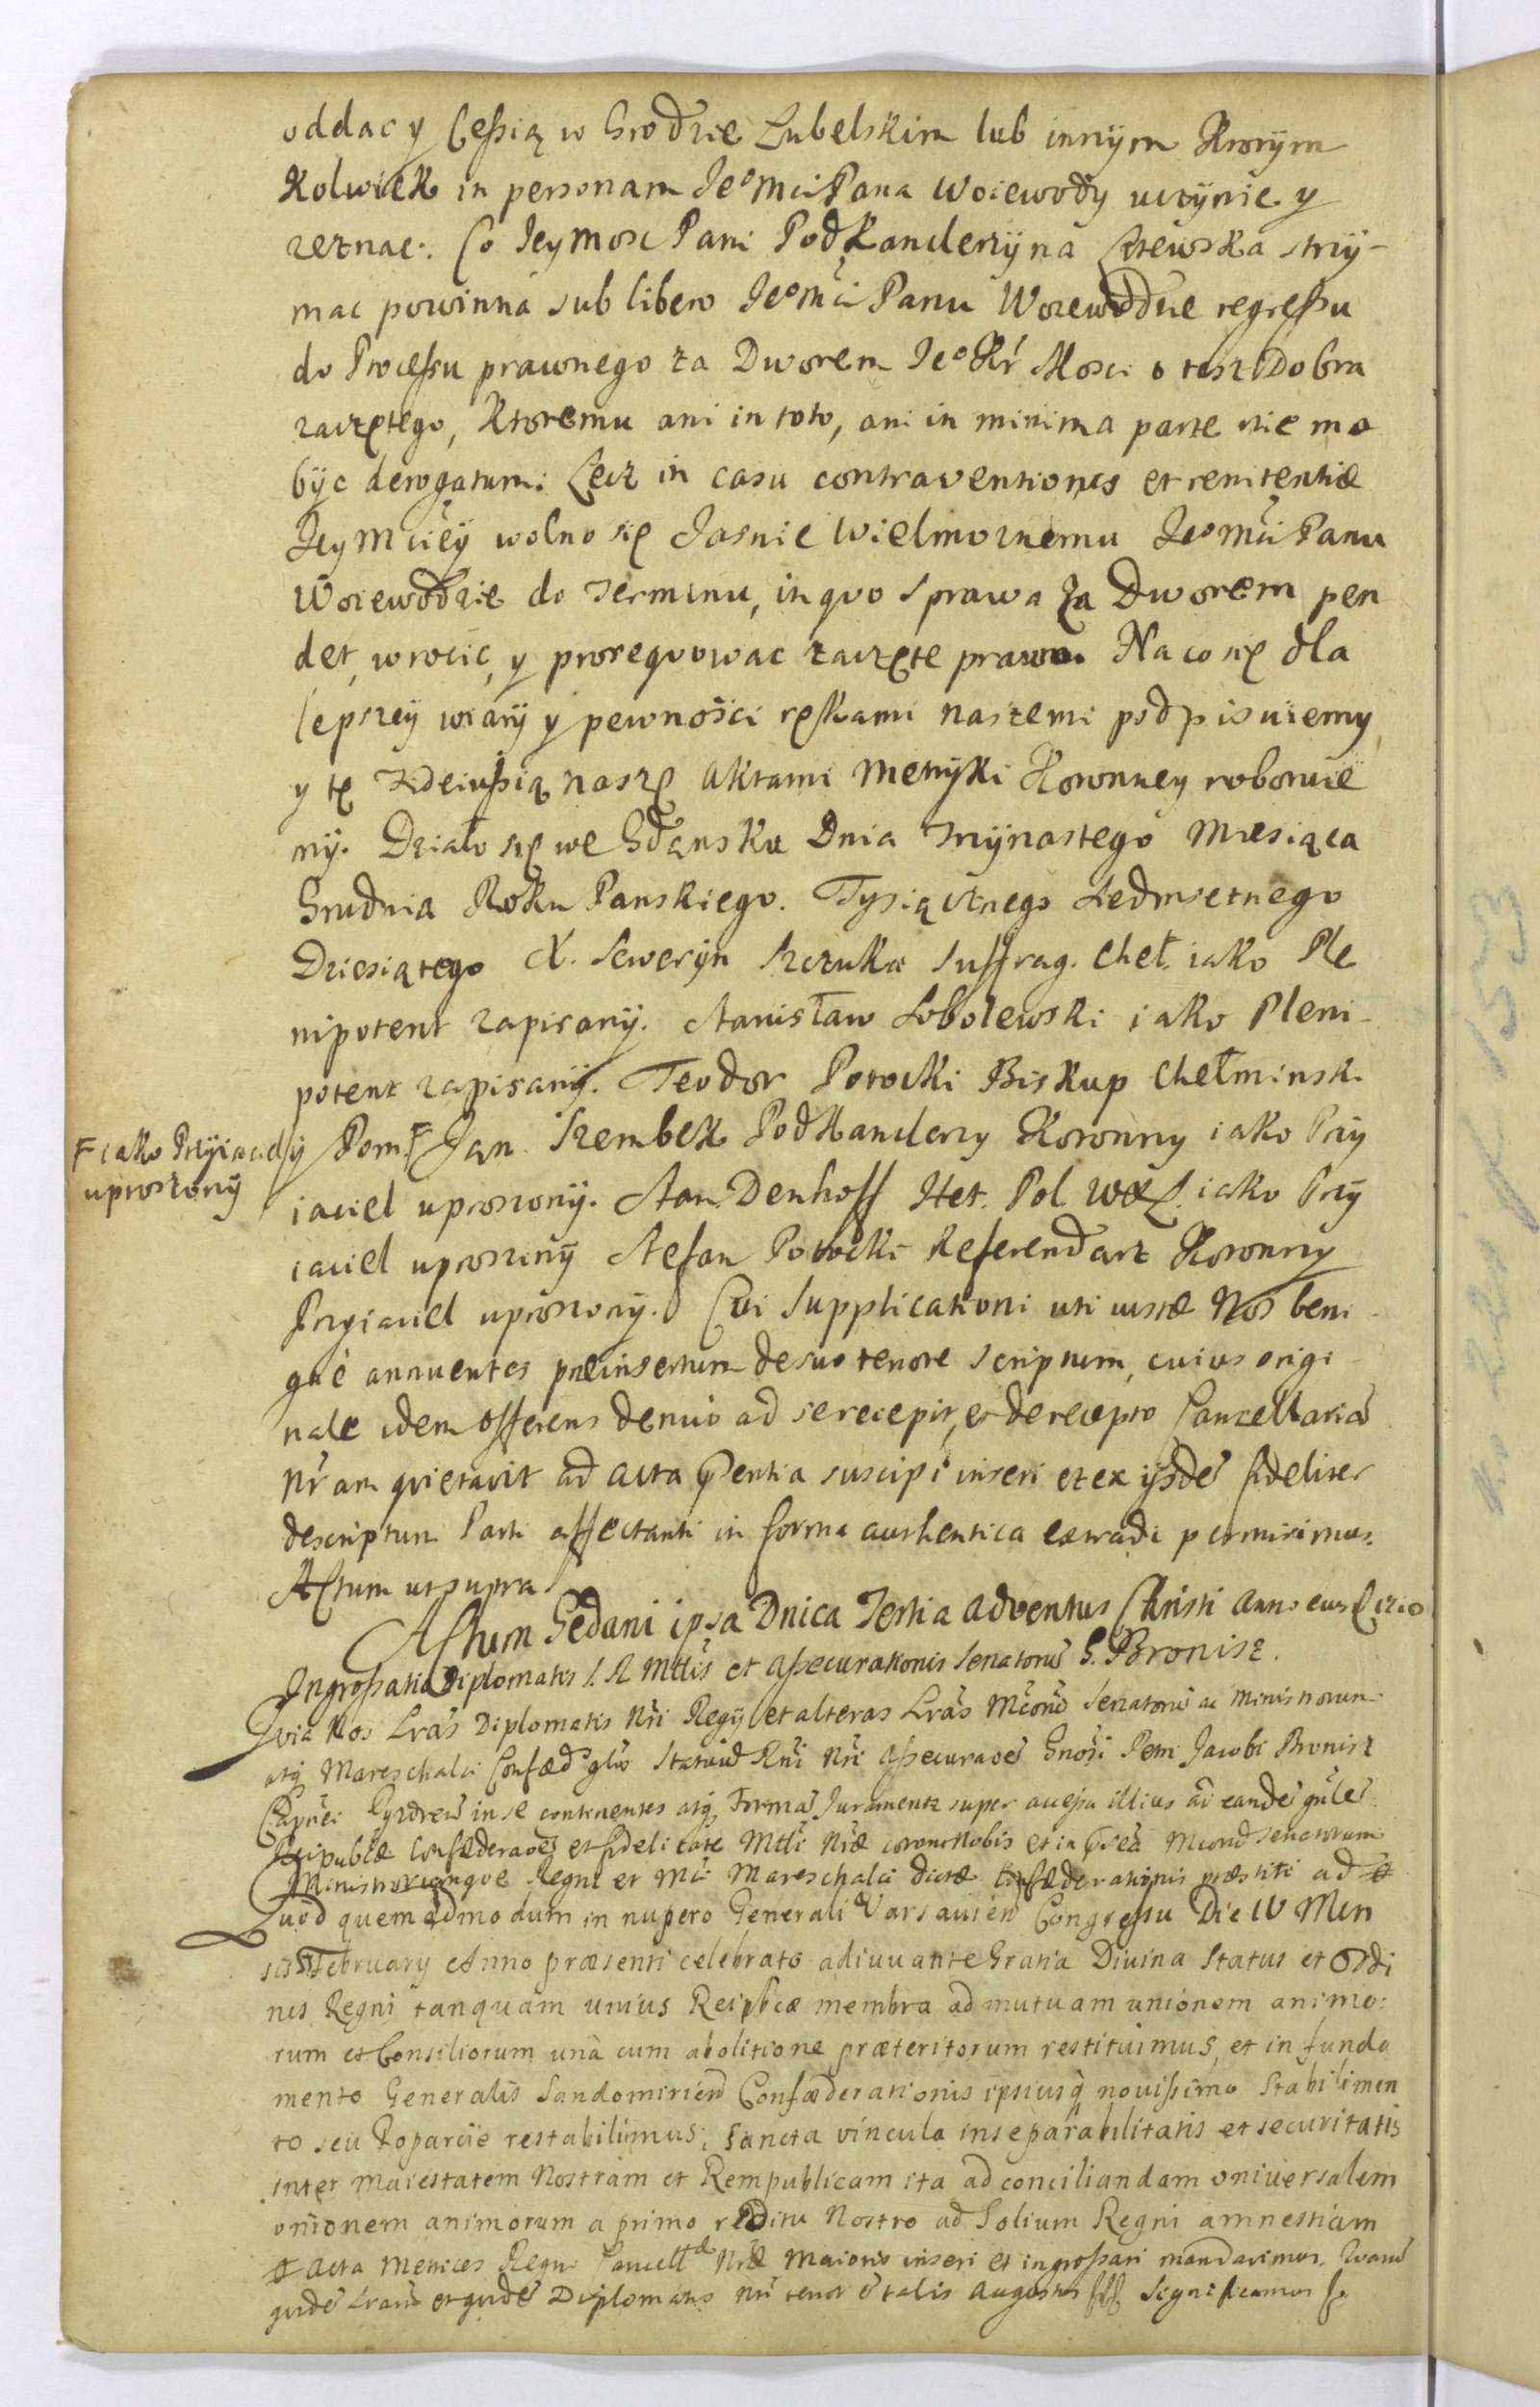 oddac y Cessią w Grodzie Lubelskim lub innÿm Ktorÿm
Kolwiek in personam Jeo Mci Pana Woiewody uczÿnic y
zeznac. Co Jeymosc Pani PodKanclerzÿna Litewska strzÿ-
mac powinna sub libero Jeo Mci Panu Woiewodzie regressu
do Processu prawnego za Dworem Jeo Kr Mosci o tesz Dobra
zaczętego, Ktoremu ani in toto, ani in minima parte nie ma
bÿc derogatum. Lecz in casu contraventiones et renitentiæ
Jey Mciey wolno się Jasnie Wielmoznemu Jeo Mci Panu
Woiewodzie do terminu, in quo sprawa za Dworem pen
det, wrocic, y prosequowac zaczęte prawo. Na co się dla
lepszeÿ wiarÿ y pewnosci rękami naszemi podpisuiemy
y tę Fideiussią naszę Aktami Metrÿki Koronney roboruie
mÿ. Działo się we Gdansku Dnia Trzÿnastego Miesiąca
Grudnia Roku Panskiego. Tysiącznego Siedmsetnego
Dziesiątego X. Seweryn Szczuka Suffrag. Cheł. iako Ple
nipotent zapisanÿ. Stanisław Sobolewski iako Pleni-
potent zapisanÿ. Teodor Potocki Biskup Chełminsk.
F iako Przÿiaciel
uproszonÿ
y Pom. F Jan Szembek PodKanclerzy Koronny iako Przÿ
iaciel uproszonÿ. Stan. Denhoff Het. Pol. WXL. iako Przÿ
iaciel uproszonÿ Stefan Potocki Referendarz Koronny
Przyiaciel uproszonÿ. Cui Supplicationi uti iustæ Nos beni-
gne annuentes præinsertum de suo tenore scriptum, cuius origi
nale idem offerens denuo ad se recepit, et de recepto Cancellariã
Nr̃am quietavit ad acta pñtia suscipi inseri et ex ijsdẽ fideliter
descriptum Parti affectanti in forma authentica extradi permisimus.
Actum ut supra
Actum Gedani ipsa Dnica Tertia Adventus Christi Anno eius 1710
Ingrossatio Diplomatis S. R. Mttis et Assecurationis Senatorũ G. Bronisz.
Quia Nos Lrãs Diplomatis Nri Regÿ et alteras Lrãs Mcorũ Senatorũ ac Ministrorum
atq̃ Mareschalci Confæd glis Statuũ Rni Nri Assecuraõe Gnosi Petri Jacobi Bronisz
Capnei Pyzdreñ in se continentes atq̃ Formã Juramenti super accessu illius ad eandẽ gñlẽ
Reipublæ Confæderaõe et fidelitate Mtti Nræ coram Nobis et in pñtia Mcorũ Senatorum
Ministrorumque Regni et Mci Mareschalci dictæ Confæderationis præstiti ad
Quod quemadmodum in nupero Generali Varsavieñ Congressu Die IV Men
sis February Anno præsenti celebrato adiuvante Gratia Divina Status et Ordi
nes Regni tanquam unius Reipblcæ membra ad mutuam unionem animo:
rum et Consiliorum unà cum abolitione præteritorum restituimus, et in funda
mento Generalis Sandomirieñ Confæderationis ipsiusq̃ novissimo Stabilimen
to seu Poparcie restabilimus; sancta vincula inseparabilitatis et securitatis
inter Maiestatem Nostram et Rempublicam ita ad conciliandam universalem
unionem animorum a primo reditu Nostro ad Solium Regni amnestiam
Acta Metrices Regni Cancellæ Nræ Maioris inseri et ingrossari mandavimus. Quarũ
quidẽ Lrarũ et quidẽ Diplomatis Nri tenor e talis Augustus sss Significamus s.